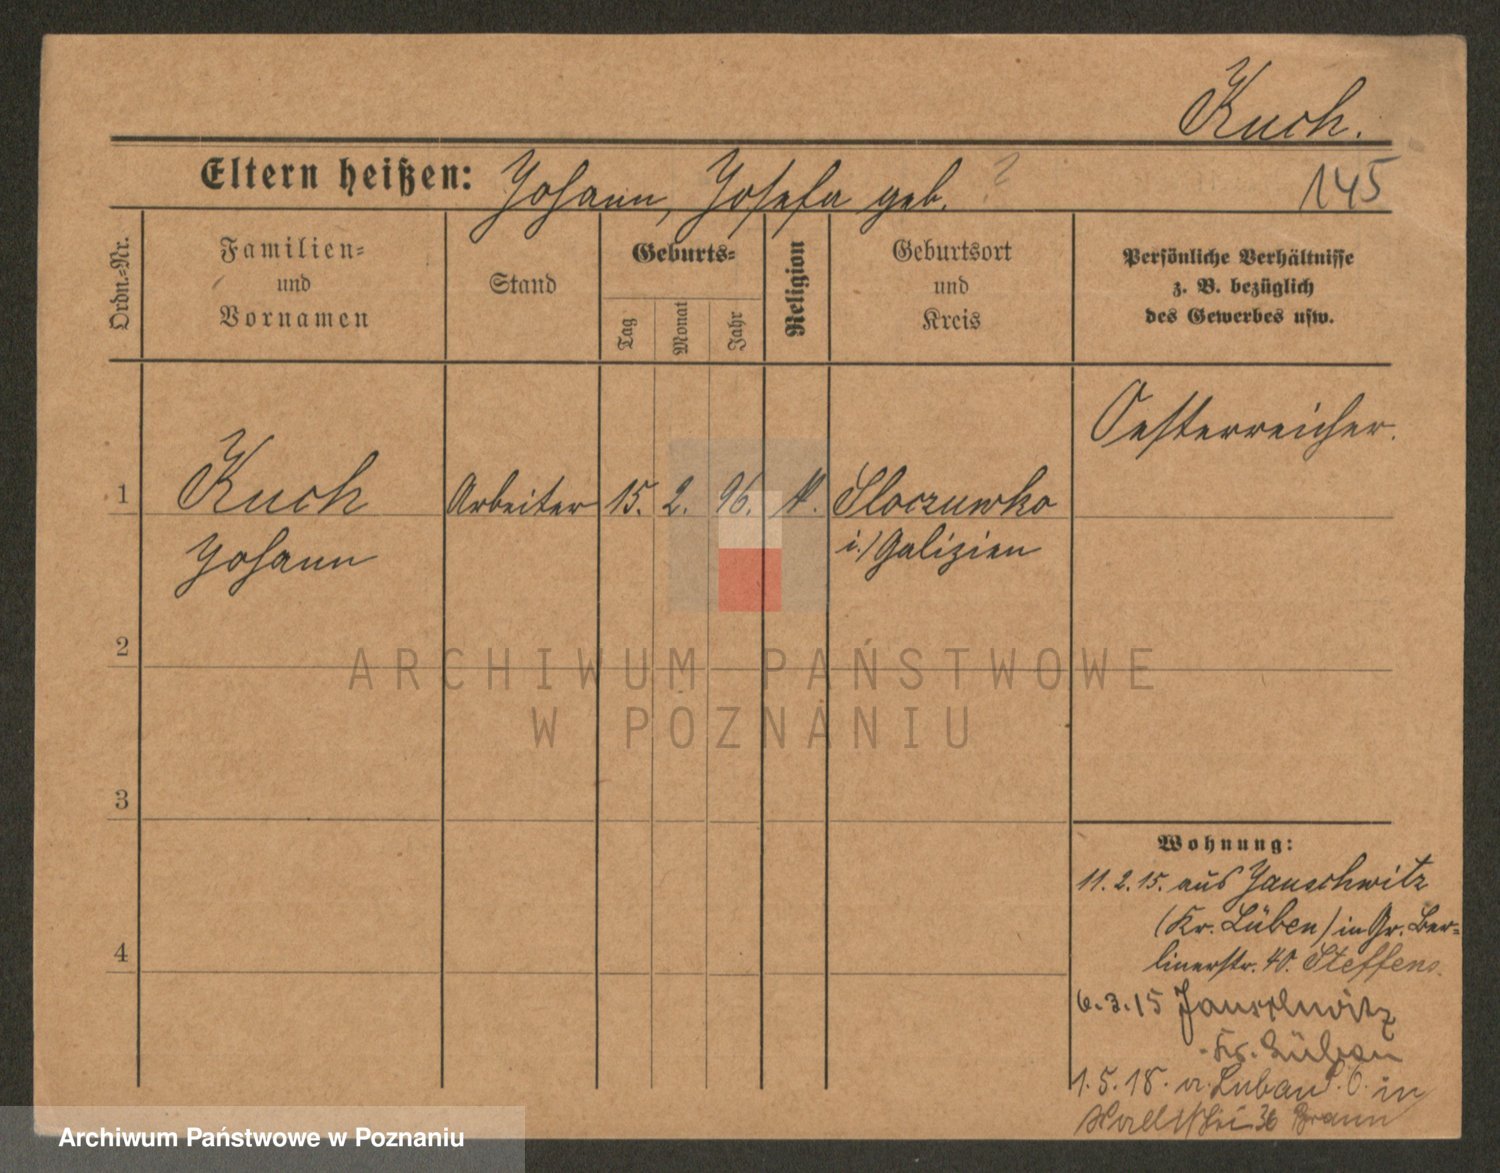 Kuch.
Eltern heißen: Johann, Josefa geb. ?
145
Ordn.-Nr.
Familien-
und
Vornamen
Stand
Geburts-
Tag
Monat
Jahr
Religion
Geburtsort
und
Kreis
Persönliche Verhältnisse
z. B. bezüglich
des Gewerbes usw.
Oesterreicher.
1
Kuch
Johann
Arbeiter
15.
2.
96.
Sloczuwko
i./Galizien
2
3
4
Wohnung:
11. 2. 15. aus Jauschwitz
(Kr. Lüben) in Gr. Ber-
linerstr. 40. Steffens.
6.3.15 Jauschwitz
Kr. Lüben
1.5.18. a. Luban in
36 Braun
ARCHIWUM PAŃSTWOWE
W POZNANIU
Archiwum Państwowe w Poznaniu